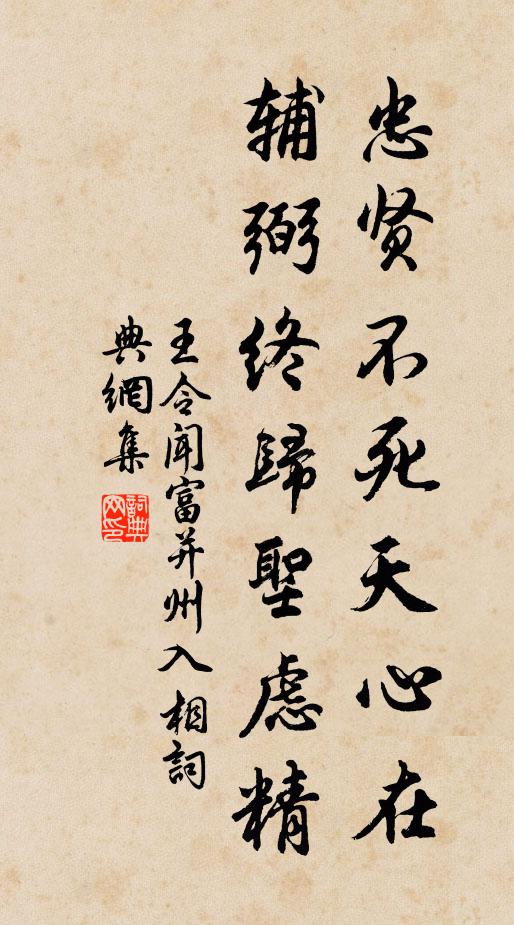 忠贤不死天心在
辅弼终歸聖慮精
王令闻富并州入相詞
典網集
詞典网印